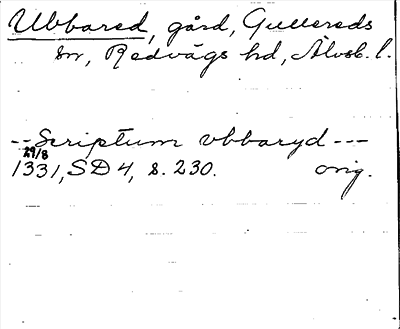 Ubbared, gård, Gullereds
sn, Redvägs hd, Älvsb. l.
--Scriptum vbbaryd ---
29/8
1331, SD 4, s. 230. orig.